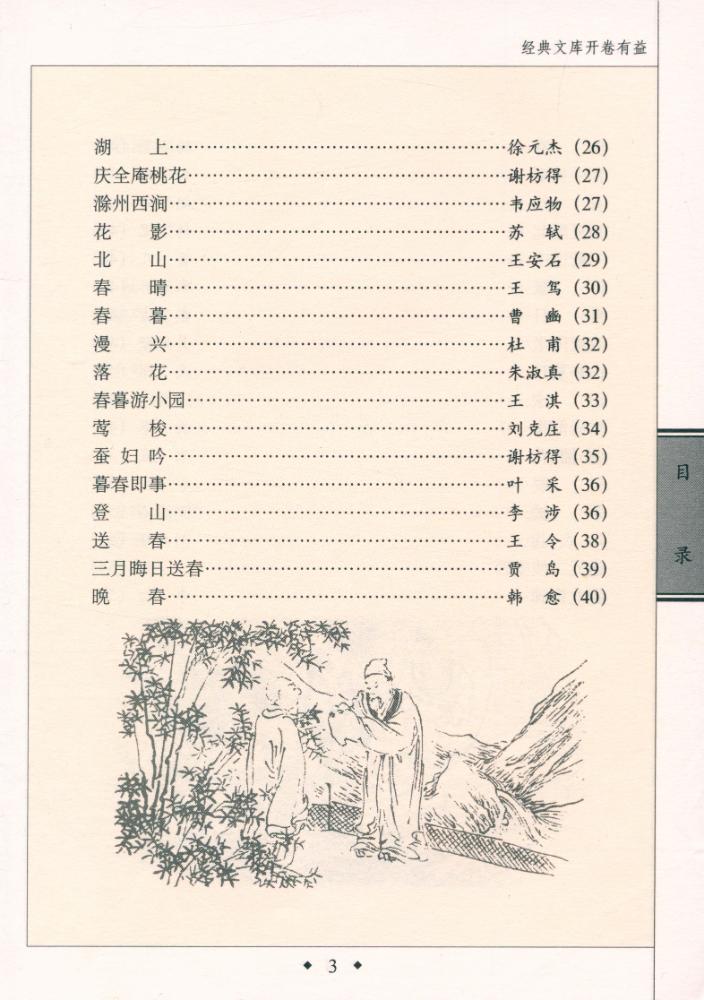 经典文库开卷有益
湖　上……徐元杰（26）
庆全庵桃花……谢枋得（27）
滁州西涧……韦应物（27）
花　影……苏　轼（28）
北　山……王安石（29）
春　晴……王　驾（30）
春　暮……曹　豳（31）
漫　兴……杜　甫（32）
落　花……朱淑真（32）
春暮游小园……王　淇（33）
莺　梭……刘克庄（34）
蚕 妇 吟……谢枋得（35）
暮春即事……叶　采（36）
登　山……李　涉（36）
送　春……王　令（38）
三月晦日送春……贾　岛（39）
晚　春……韩　愈（40）
目
录
◆ 3 ◆